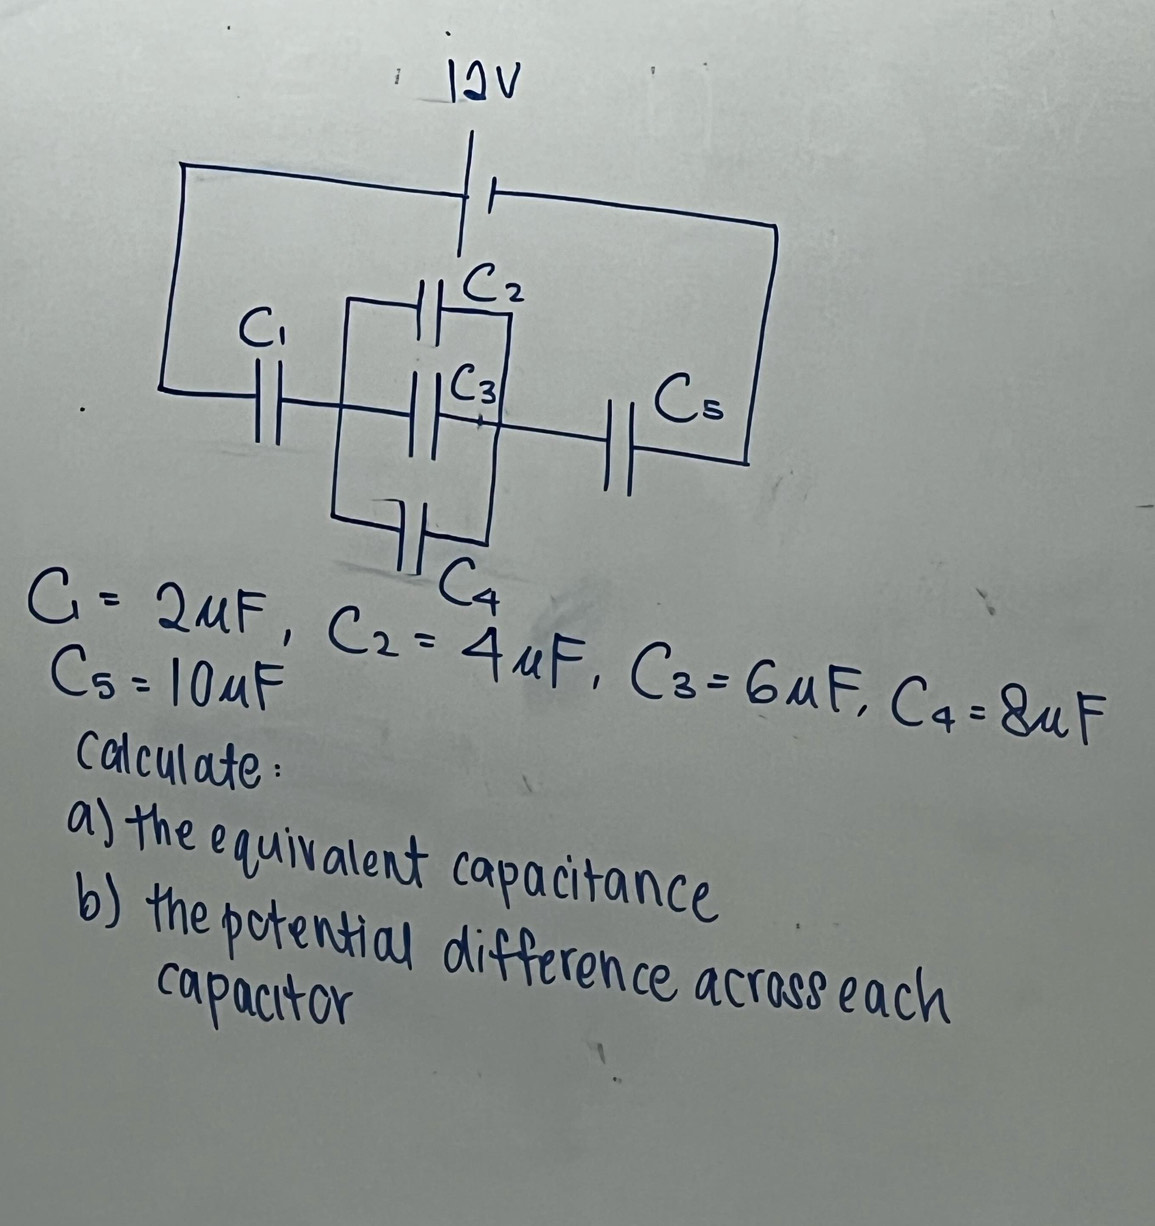 12V
C2
C1
C3
C5
C4
C1 = 2μF, C2 = 4μF, C3 = 6μF, C4 = 8μF
C5 = 10μF
calculate:
a) the equivalent capacitance
b) the potential difference across each
capacitor